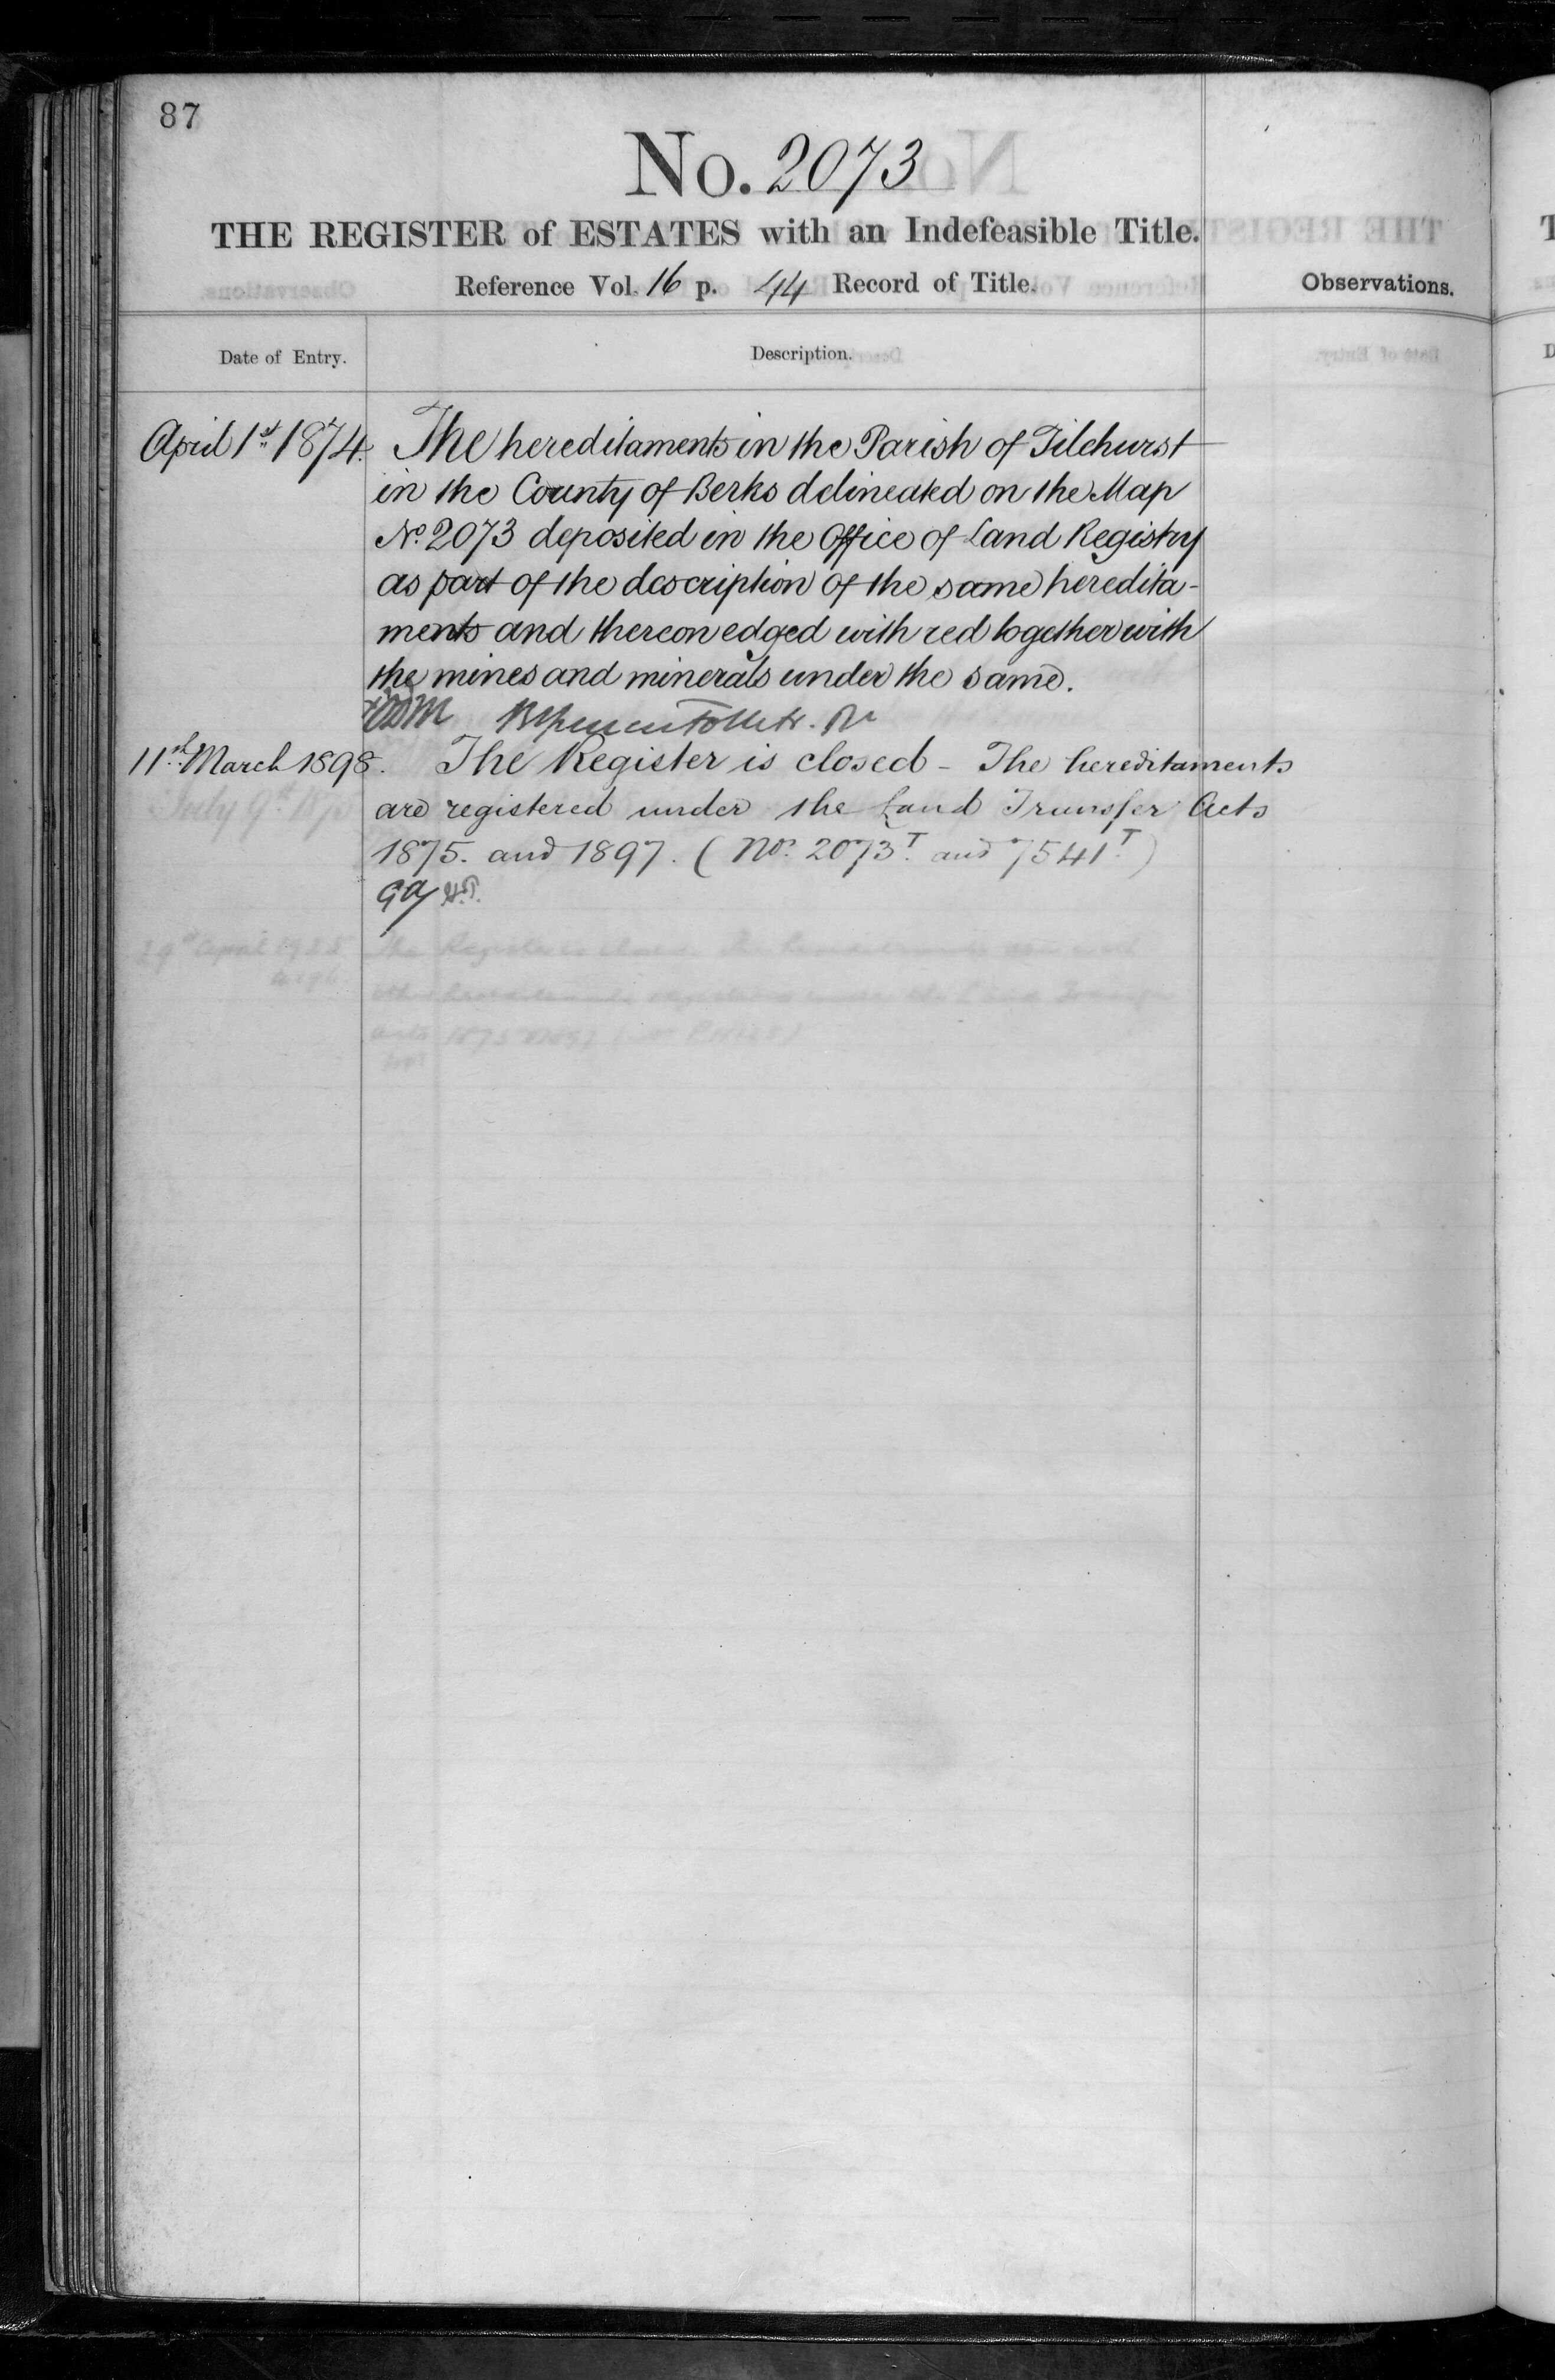 87
No. 2073
THE REGISTER of ESTATES with an Indefeasible Title.
Reference Vol. 16 p. 44 Record of Title.
Observations.
Date of Entry.
Description.
April 1st 1874. The hereditaments in the Parish of Tilehurst
in the County of Berks delineated on the Map
No. 2073 deposited in the Office of Land Registry
as part of the description of the same heredita-
ments and thereon edged with red together with
the mines and minerals under the same.
11th March 1898. The Register is closed - The hereditaments
are registered under the Land Transfer Acts
1875. and 1897. (Nos. 2073T. and 7541T.)